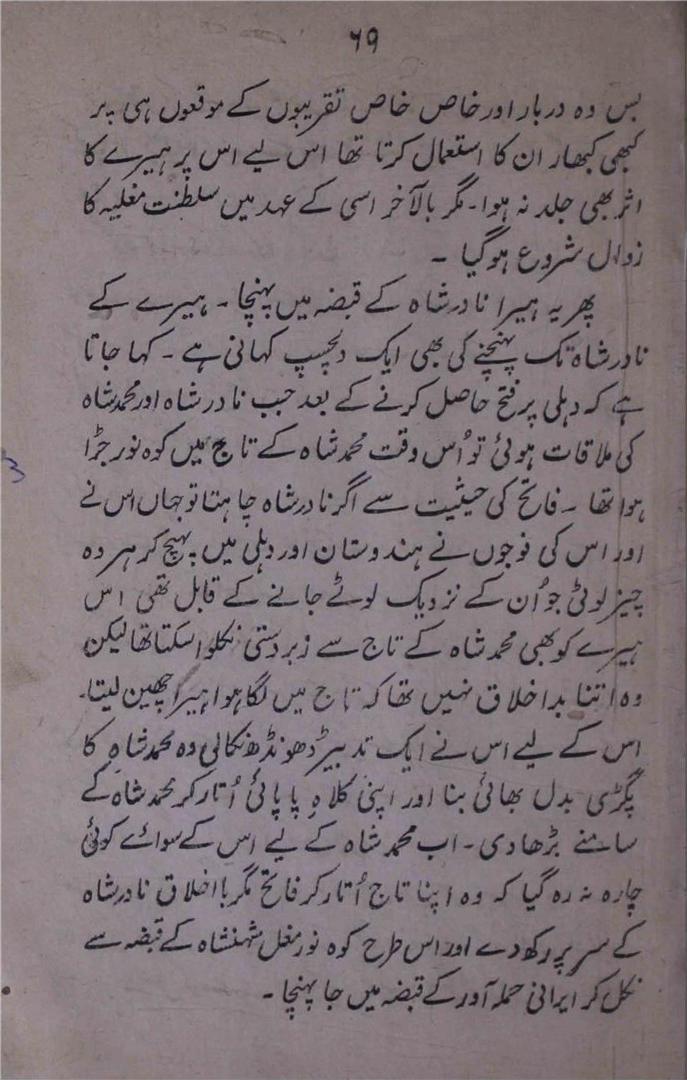 ۶۹
بس وہ دربار اور خاص خاص تقریبوں کے موقعوں ہی پر
کبھی کبھار ان کا استعمال کرتا تھا اس لیے اس پر ہیرے کا
اثر بھی جلد نہ ہوا۔ مگر بالآخر اسی کے عہد میں سلطنت مغلیہ کا
زوال شروع ہو گیا ۔
پھر یہ ہیرا نادر شاہ کے قبضہ میں پہنچا ۔ ہیرے کے
نادر شاہ تک پہنچنے کی بھی ایک دلچسپ کہانی ہے ۔ کہا جاتا
ہے کہ دہلی پر فتح حاصل کرنے کے بعد جب نادر شاہ اور محمد شاہ
کی ملاقات ہوئی تو اُس وقت محمد شاہ کے تاج میں کوہ نور جڑا
ہوا تھا ۔ فاتح کی حیثیت سے اگر نادر شاہ چاہتا تو جہاں اس نے
اور اس کی فوجوں نے ہندوستان اور دہلی میں پہنچ کر ہر وہ
چیز لوٹی جو اُن کے نزدیک لوٹے جانے کے قابل تھی اس
ہیرے کو بھی محمد شاہ کے تاج سے زبردستی نکلوا سکتا تھا لیکن
وہ اتنا بد اخلاق نہیں تھا کہ تاج میں لگا ہوا ہیرا چھین لیتا۔
اس کے لیے اس نے ایک تدبیر ڈھونڈھ نکالی وہ محمد شاہ کا
پگڑی بدل بھائی بنا اور اپنی کلاہِ پاپائی اُتار کر محمد شاہ کے
سامنے بڑھا دی ۔ اب محمد شاہ کے لیے اس کے سوائے کوئی
چارہ نہ رہ گیا کہ وہ اپنا تاج اُتار کر فاتح مگر با اخلاق نادر شاہ
کے سر پر رکھ دے اور اس طرح کوہ نور مغل شہنشاہ کے قبضہ سے
نکل کر ایرانی حملہ آور کے قبضہ میں جا پہنچا ۔